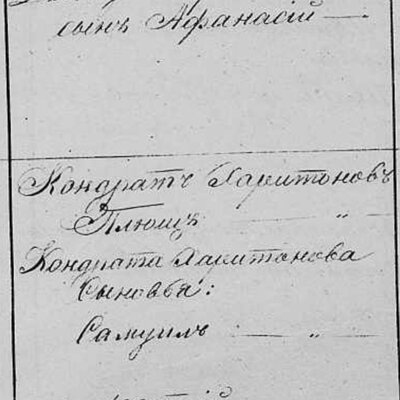 сынъ Афанасій —
Кондратъ Харитоновъ
Плющъ — „ —
Кондрата Харитонова
Сыновья:
Самуилъ — „ —